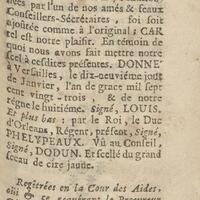 nées par l'un de nos amés & féaux
Conseillers-Sécretaires, foi soit
ajoûtée comme à l'original: CAR
tel est notre plaisir. En témoin de
quoi nous avons fait mettre notre
scel à cesdites présentes. DONNE
à Versailles, le dix-neuviéme jour
de Janvier, l'an de grace mil sept
cent vingt-trois, & de notre
régne le huitiéme. Signé, LOUIS,
Et plus bas: par le Roi, le Duc
d'Orleans, Régent, présent, Signé,
PHELYPEAUX. Vû au Conseil,
Signé, DODUN. Et scellé du grand
sceau de cire jaune.
Regîtrées en la Cour des Aides,
oüi & ce requérant le Procureur